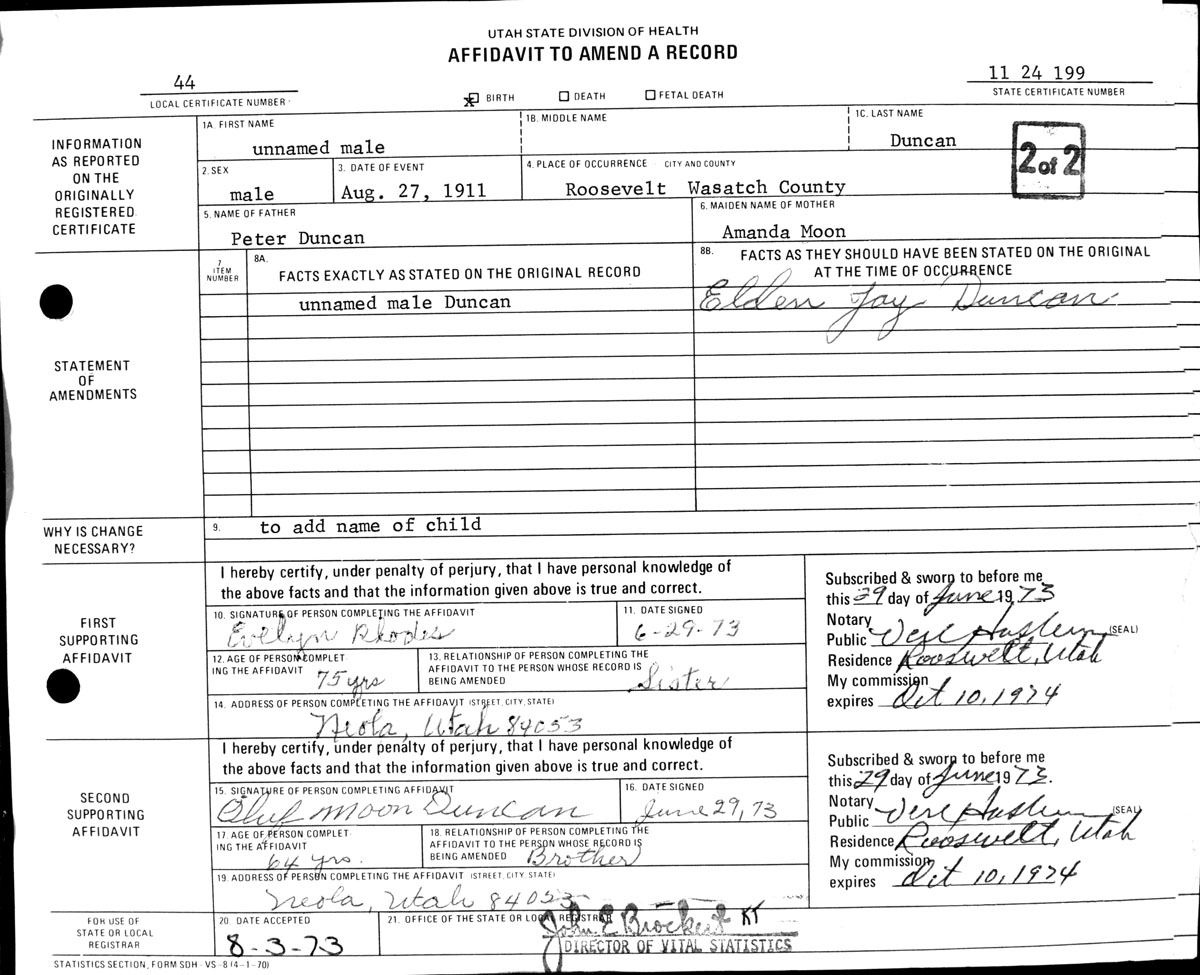 UTAH STATE DIVISION OF HEALTH
AFFIDAVIT TO AMEND A RECORD
44
LOCAL CERTIFICATE NUMBER
BIRTH DEATH FETAL DEATH
11 24 199
STATE CERTIFICATE NUMBER
INFORMATION
AS REPORTED
ON THE
ORIGINALLY
REGISTERED
CERTIFICATE
1A. FIRST NAME
unnamed male
1B. MIDDLE NAME
1C. LAST NAME
Duncan
2 of 2
2. SEX
male
3. DATE OF EVENT
Aug. 27, 1911
4. PLACE OF OCCURRENCE CITY AND COUNTY
Roosevelt Wasatch County
5. NAME OF FATHER
Peter Duncan
6. MAIDEN NAME OF MOTHER
Amanda Moon
STATEMENT
OF
AMENDMENTS
7
ITEM
NUMBER
8A.
FACTS EXACTLY AS STATED ON THE ORIGINAL RECORD
unnamed male Duncan
8B. FACTS AS THEY SHOULD HAVE BEEN STATED ON THE ORIGINAL
AT THE TIME OF OCCURRENCE
Elden Jay Duncan
WHY IS CHANGE
NECESSARY?
9. to add name of child
FIRST
SUPPORTING
AFFIDAVIT
I hereby certify, under penalty of perjury, that I have personal knowledge of
the above facts and that the information given above is true and correct.
10. SIGNATURE OF PERSON COMPLETING THE AFFIDAVIT
Evelyn Rhodes
11. DATE SIGNED
6-29-73
12. AGE OF PERSON COMPLET
ING THE AFFIDAVIT 75 yrs
13. RELATIONSHIP OF PERSON COMPLETING THE
AFFIDAVIT TO THE PERSON WHOSE RECORD IS
BEING AMENDED Sister
14. ADDRESS OF PERSON COMPLETING THE AFFIDAVIT (STREET, CITY, STATE)
Neola, Utah 84053
Subscribed & sworn to before me
this 29 day of June 1973
Notary
Public (SEAL)
Residence Roosevelt, Utah
My commission
expires Oct 10, 1974
SECOND
SUPPORTING
AFFIDAVIT
I hereby certify, under penalty of perjury, that I have personal knowledge of
the above facts and that the information given above is true and correct.
15. SIGNATURE OF PERSON COMPLETING AFFIDAVIT
Oluf Moon Duncan
16. DATE SIGNED
June 29, 73
17. AGE OF PERSON COMPLET
ING THE AFFIDAVIT 64 yrs.
18. RELATIONSHIP OF PERSON COMPLETING THE
AFFIDAVIT TO THE PERSON WHOSE RECORD IS
BEING AMENDED Brother
19. ADDRESS OF PERSON COMPLETING THE AFFIDAVIT (STREET, CITY, STATE)
Neola, Utah 84053
Subscribed & sworn to before me
this 29 day of June 1973.
Notary
Public (SEAL)
Residence Roosevelt, Utah
My commission
expires Oct 10, 1974
FOR USE OF
STATE OR LOCAL
REGISTRAR
20. DATE ACCEPTED
8-3-73
21. OFFICE OF THE STATE OR LOCAL REGISTRAR
John E Brockert KT
DIRECTOR OF VITAL STATISTICS
STATISTICS SECTION, FORM SDH-VS-8 (4-1-70)